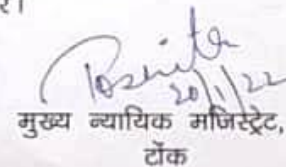 रे।
20/1/22
मुख्य न्यायिक मजिस्ट्रेट,
टोंक